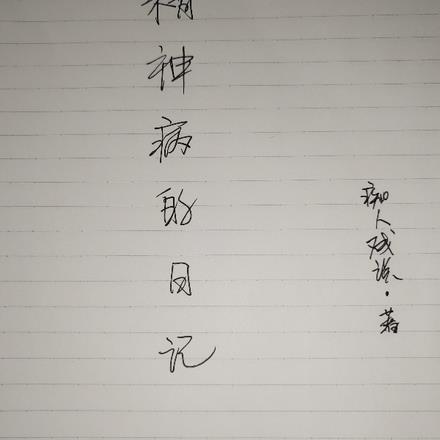 精神病的日记
痴人残说·著